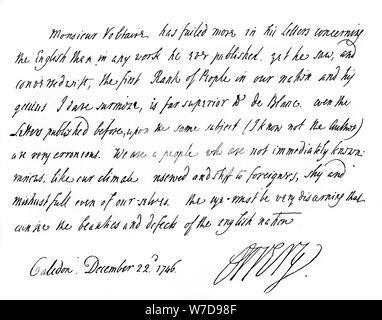 Monsieur Voltaire has failed more in his Letters concerning
the English than in any work he ever published. yet he saw, and
conversed with, the first Rank of People in our nation and his
genius I dare surmize, is far superior to de Blanc. even the
Letters published before, upon the same subject (I know not the Author)
are very erronious. We are a people who are not immediately known:
various, like our climate reserved and stiff to foreigners, shy and
mistrustfull even of our selves. the eye must be very discerning that
can see the beauties and defects of the english nation
Caledon. December 22d. 1746. Orrery.
a alamy
alamy
Image ID: W7D98F
www.alamy.com